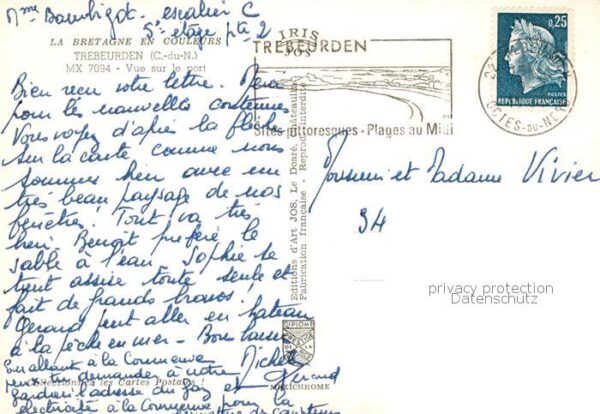 Mme Baubigot - escalier C
5e étage pte 2
LA BRETAGNE EN COULEURS
TREBEURDEN (C.-du-N.)
MX 7094 - Vue sur le port
Bien reçu votre lettre. Merci
pour les nouvelles contenues
Vous voyez d'après la flèche
sur la carte comme nous
sommes bien avec un
très beau paysage de nos
fenêtres. Tout va très
bien. Benoît préfère le
sable à l'eau. Sophie se
tient assise toute seule et
fait de grands bravos!
Gérard peut aller en bateau
à la pêche en mer - Bons baisers
Michèle
Gérard
En allant à la Courneuve
demander à notre
gardien l'adresse du gaz et
électricité à la Courneuve pour la
Collectionnez les Cartes Postales !
IRIS
JOS
TREBEURDEN
Sites pittoresques - Plages au Midi
Editions d'Art JOS, Le Doaré, Châteaulin
Fabrication française - Reprod. interdite
DIPLOME
MEXICHROME
0,25
POSTES
REPUBLIQUE FRANÇAISE
22
COTES-DU-NORD
Monsieur et Madame Vivier
34
privacy protection
Datenschutz